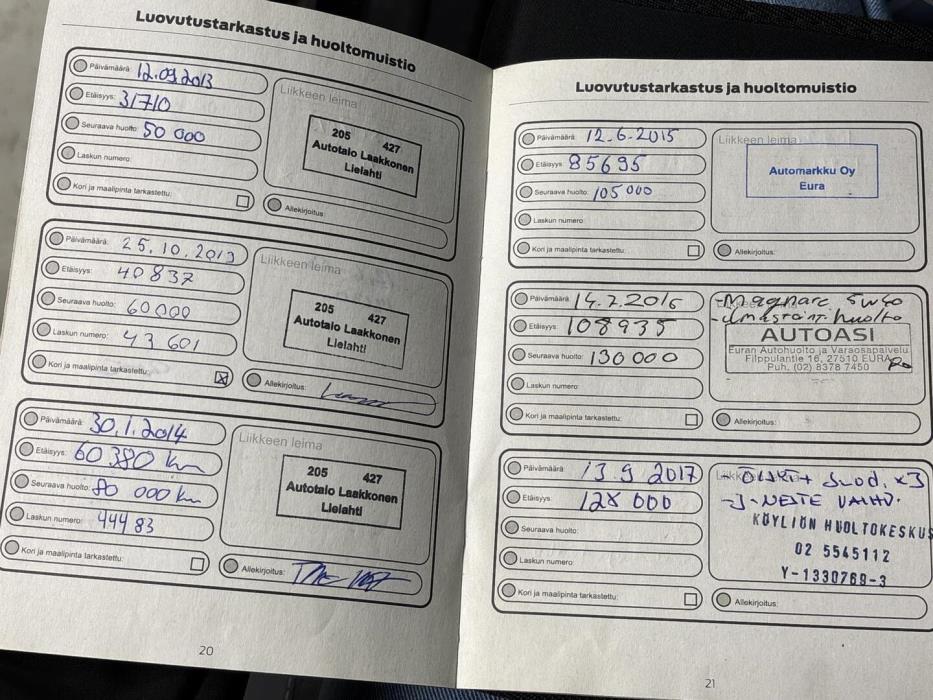 Luovutustarkastus ja huoltomuistio
Päivämäärä: 12.09.2013
Etäisyys: 31710
Seuraava huolto: 50 000
Laskun numero:
Kori ja maalipinta tarkastettu:
Liikkeen leima
205 427
Autotalo Laakkonen
Lielahti
Allekirjoitus:
Päivämäärä: 25.10.2013
Etäisyys: 40837
Seuraava huolto: 60000
Laskun numero: 43601
Kori ja maalipinta tarkastettu:
Liikkeen leima
205 427
Autotalo Laakkonen
Lielahti
Allekirjoitus:
Päivämäärä: 30.1.2014
Etäisyys: 60380 km
Seuraava huolto: 80 000 km
Laskun numero: 44483
Kori ja maalipinta tarkastettu:
Liikkeen leima
205 427
Autotalo Laakkonen
Lielahti
Allekirjoitus:
20
Luovutustarkastus ja huoltomuistio
Päivämäärä: 12.6.2015
Etäisyys: 85695
Seuraava huolto: 105000
Laskun numero:
Kori ja maalipinta tarkastettu:
Liikkeen leima
Automarkku Oy
Eura
Allekirjoitus:
Päivämäärä: 14.7.2016
Etäisyys: 108935
Seuraava huolto: 130 000
Laskun numero:
Kori ja maalipinta tarkastettu:
-Magnatec 5W40
-ilmastoint. huolto
AUTOASI
Euran Autohuolto ja Varaosapalvelu
Filppulantie 16, 27510 EURA
Puh. (02) 8378 7450
Allekirjoitus:
Päivämäärä: 13.9 2017
Etäisyys: 128 000
Seuraava huolto:
Laskun numero:
Kori ja maalipinta tarkastettu:
ÖLJY + Suod. x3
J-NESTE VAIHD.
KÖYLIÖN HUOLTOKESKUS
02 5545112
Y-1330769-3
Allekirjoitus:
21